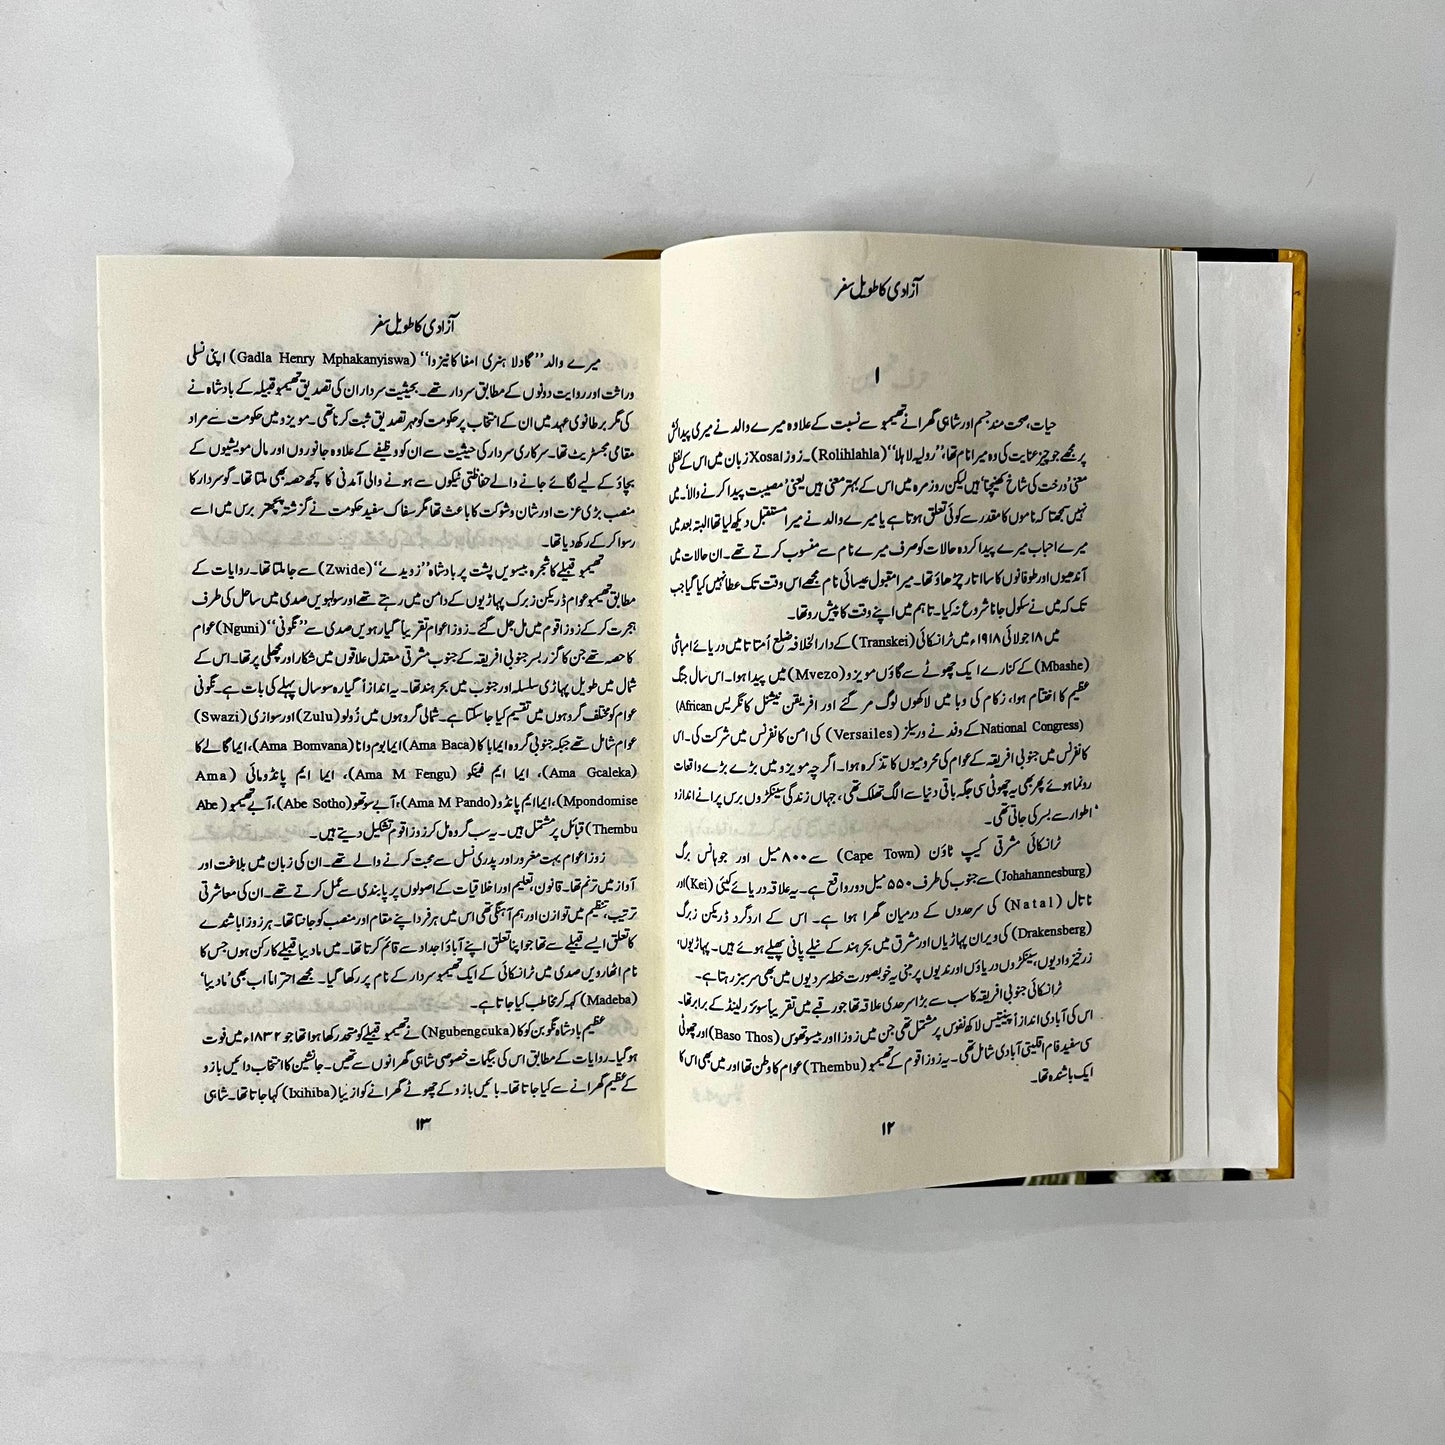 آزادی کا طویل سفر
۱
حیات، صحت مند جسم اور شاہی گھرانے تھیمبو سے نسبت کے علاوہ میرے والد نے میری پیدائش
پر مجھے جو چیز عنایت کی وہ میرا نام تھا، ”رولیہ لاہلا“ (Rolihlahla)۔ زوزا Xosa زبان میں اس کے لفظی
معنی ’درخت کی شاخ کھینچنا‘ ہیں لیکن روزمرہ میں اس کے بہتر معنی ہیں یعنی ’مصیبت پیدا کرنے والا‘۔ میں
نہیں سمجھتا کہ ناموں کا مقدر سے کوئی تعلق ہوتا ہے یا میرے والد نے میرا مستقبل دیکھ لیا تھا البتہ بعد میں
میرے احباب میرے پیدا کردہ حالات کو صرف میرے نام سے منسوب کرتے تھے۔ ان حالات میں
آندھیوں اور طوفانوں کا سا اتار چڑھاؤ تھا۔ میرا مقبول عیسائی نام مجھے اس وقت تک عطا نہیں کیا گیا جب
تک کہ میں نے سکول جانا شروع نہ کیا۔ تاہم میں اپنے وقت کا پیش رو تھا۔
میں ۱۸ جولائی ۱۹۱۸ء میں ٹرانسکائی (Transkei) کے دارالخلافہ ضلع اُمتاتا میں دریائے امباشی
(Mbashe) کے کنارے ایک چھوٹے سے گاؤں مویزو (Mvezo) میں پیدا ہوا۔ اس سال جنگ
عظیم کا اختتام ہوا، زکام کی وبا میں لاکھوں لوگ مر گئے اور افریقن نیشنل کانگریس (African
National Congress) کے وفد نے وریلز (Versailes) کی امن کانفرنس میں شرکت کی۔ اس
کانفرنس میں جنوبی افریقہ کے عوام کی محرومیوں کا تذکرہ ہوا۔ اگرچہ مویزو میں بڑے بڑے واقعات
رونما ہوئے پھر بھی یہ چھوٹی سی جگہ باقی دنیا سے الگ تھلگ تھی، جہاں زندگی سینکڑوں برس پرانے انداز و
اطوار سے بسر کی جاتی تھی۔
ٹرانسکائی مشرقی کیپ ٹاؤن (Cape Town) سے ۸۰۰ میل اور جوہانس برگ
(Johahannesburg) سے جنوب کی طرف ۵۵۰ میل دور واقع ہے۔ یہ علاقہ دریائے کیئی (Kei) اور
ناتال (Natal) کی سرحدوں کے درمیان گھرا ہوا ہے۔ اس کے اردگرد ڈریکن زبرگ
(Drakensberg) کی ویران پہاڑیاں اور مشرق میں بحر ہند کے نیلے پانی پھیلے ہوئے ہیں۔ پہاڑیوں،
زرخیز وادیوں، سینکڑوں دریاؤں اور ندیوں پر مبنی یہ خوبصورت خطہ سردیوں میں بھی سرسبز رہتا ہے۔
ٹرانسکائی جنوبی افریقہ کا سب سے بڑا سرحدی علاقہ تھا جو رقبے میں تقریباً سوئزرلینڈ کے برابر تھا۔
اس کی آبادی اندازاً پینتیس لاکھ نفوس پر مشتمل تھی جن میں زوزا اور بیسوتھوس (Baso Thos) اور چھوٹی
سی سفید فام اقلیتی آبادی شامل تھی۔ یہ زوزا اقوام کے تھیمبو (Thembu) عوام کا وطن تھا اور میں بھی اس کا
ایک باشندہ تھا۔
۱۲
آزادی کا طویل سفر
میرے والد ”گادلا ہنری امفا کانیزوا“ (Gadla Henry Mphakanyiswa) اپنی نسلی
وراثت اور روایت دونوں کے مطابق سردار تھے۔ بحیثیت سردار ان کی تصدیق تھیمبو قبیلہ کے بادشاہ نے
کی مگر برطانوی عہد میں ان کے انتخاب پر حکومت کو مہر تصدیق ثبت کرنا تھی۔ مویزو میں حکومت سے مراد
مقامی مجسٹریٹ تھا۔ سرکاری سردار کی حیثیت سے ان کو وظیفے کے علاوہ جانوروں اور مال مویشیوں کے
بچاؤ کے لیے لگائے جانے والے حفاظتی ٹیکوں سے ہونے والی آمدنی کا کچھ حصہ بھی ملتا تھا۔ گو سردار کا
منصب بڑی عزت اور شان و شوکت کا باعث تھا مگر سفاک سفید حکومت نے گزشتہ پچھتر برس میں اسے
رسوا کر کے رکھ دیا تھا۔
تھیمبو قبیلے کا شجرہ بیسویں پشت پر بادشاہ ”زویدے“ (Zwide) سے جا ملتا تھا۔ روایات کے
مطابق تھیمبو عوام ڈریکن زبرک پہاڑیوں کے دامن میں رہتے تھے اور سولہویں صدی میں ساحل کی طرف
ہجرت کر کے زوزا قوم میں مل جل گئے۔ زوزا عوام تقریباً گیارہویں صدی سے ”نگونی“ (Nguni) عوام
کا حصہ تھے جن کا گزر بسر جنوبی افریقہ کے جنوب مشرقی معتدل علاقوں میں شکار اور مچھلی پر تھا۔ اس کے
شمال میں طویل پہاڑی سلسلہ اور جنوب میں بحر ہند تھا۔ یہ اندازاً گیارہ سو سال پہلے کی بات ہے۔ نگونی
عوام کو مختلف گروہوں میں تقسیم کیا جا سکتا ہے۔ شمالی گروہوں میں زُولو (Zulu) اور سوازی (Swazi)
عوام شامل تھے جبکہ جنوبی گروہ ایما باکا (Ama Baca) ایما بوم وانا (Ama Bomvana)، ایما گالے کا
(Ama Gcaleka)، ایما ایم فینگو (Ama M Fengu)، ایما ایم پانڈو مائی (Ama
Mpondomise)، ایما ایم پانڈو (Ama M Pando)، آبے سوتھو (Abe Sotho)، آبے تھیمبو (Abe
Thembu) قبائل پر مشتمل ہیں۔ یہ سب گروہ مل کر زوزا قوم تشکیل دیتے ہیں۔
زوزا عوام بہت مغرور اور پدری نسل سے محبت کرنے والے تھے۔ ان کی زبان میں بلاغت اور
آواز میں ترنم تھا۔ قانون، تعلیم اور اخلاقیات کے اصولوں پر پابندی سے عمل کرتے تھے۔ ان کی معاشرتی
ترتیب، تنظیم میں توازن اور ہم آہنگی تھی اس میں ہر فرد اپنے مقام اور منصب کو جانتا تھا۔ ہر زوزا باشندے
کا تعلق ایسے قبیلے سے تھا جو اپنا تعلق اپنے آباؤ اجداد سے قائم کرتا تھا۔ میں مادیبا قبیلے کا رکن ہوں جس کا
نام اٹھارویں صدی میں ٹرانسکائی کے ایک تھیمبو سردار کے نام پر رکھا گیا۔ مجھے احتراماً اب بھی ’مادیبا‘
(Madeba) کہہ کر مخاطب کیا جاتا ہے۔
عظیم بادشاہ نگوبن کوکا (Ngubengcuka) نے تھیمبو قبیلے کو متحد رکھا ہوا تھا جو ۱۸۳۲ء میں فوت
ہو گیا۔ روایات کے مطابق اس کی بیگمات خصوصی شاہی گھرانوں سے تھیں۔ جانشین کا انتخاب دائیں بازو
کے عظیم گھرانے سے کیا جاتا تھا۔ بائیں بازو کے چھوٹے گھرانے کو ازیبا (Ixihiba) کہا جاتا تھا۔ شاہی
۱۳